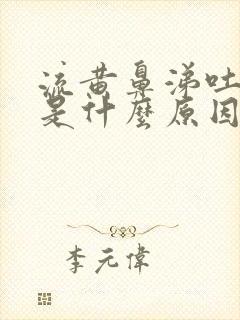 流黄鼻涕吐
是什麼原因
李元偉